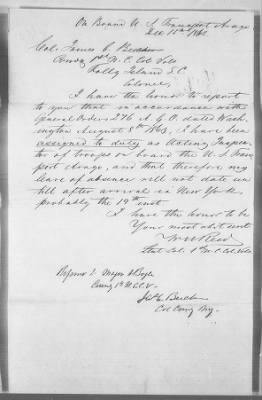 On Board U. S. Transport Arago
Dec 15th 1863
Col. James C. Beecher
Comdg 1st N. C. Col Vols
Folly Island S.C.
Colonel
I have the honor to report
to you that in accordance with
General Orders 276 A. G. O. dated Wash-
ington August 8th 1863, I have been
assigned to duty as Acting Inspec-
tor of troops on board the U. S. Trans-
port Arago, and that therefore my
leave of absence will not date un-
till after arrival in New York
probably the 19th inst.
I have the honor to be
Your most obt servt
Wm N Reed
Lieut Col. 1st N C Col Vols
Major Boyle
Comg 1st N.C.C.V.
Jas C. Beecher
Col Comg Brig.